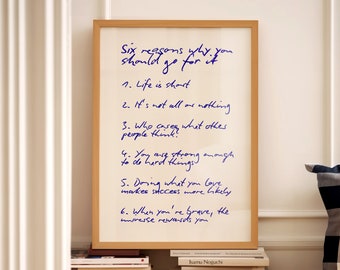 Six reasons why you
should go for it
1. Life is short
2. It's not all or nothing
3. Who cares what other
people think?
4. You are strong enough
to do hard things
5. Doing what you love
makes success more likely
6. When you're brave, the
universe rewards you
Isamu Noguchi